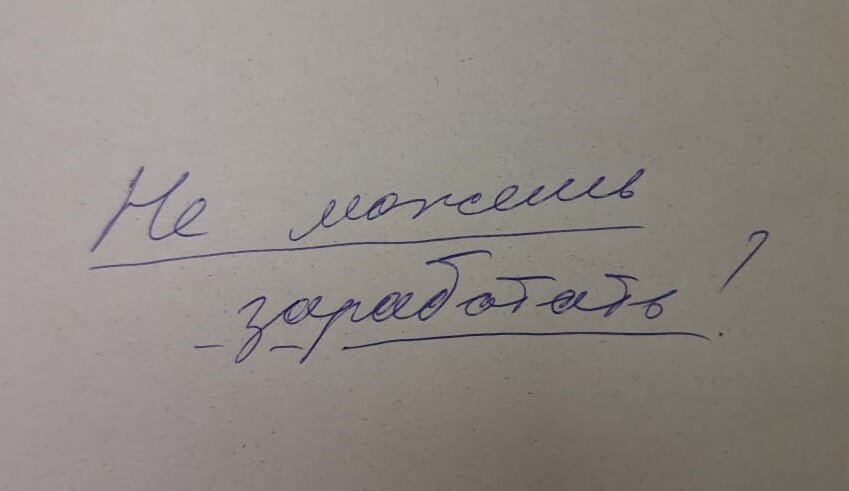 Не можешь
заработать?